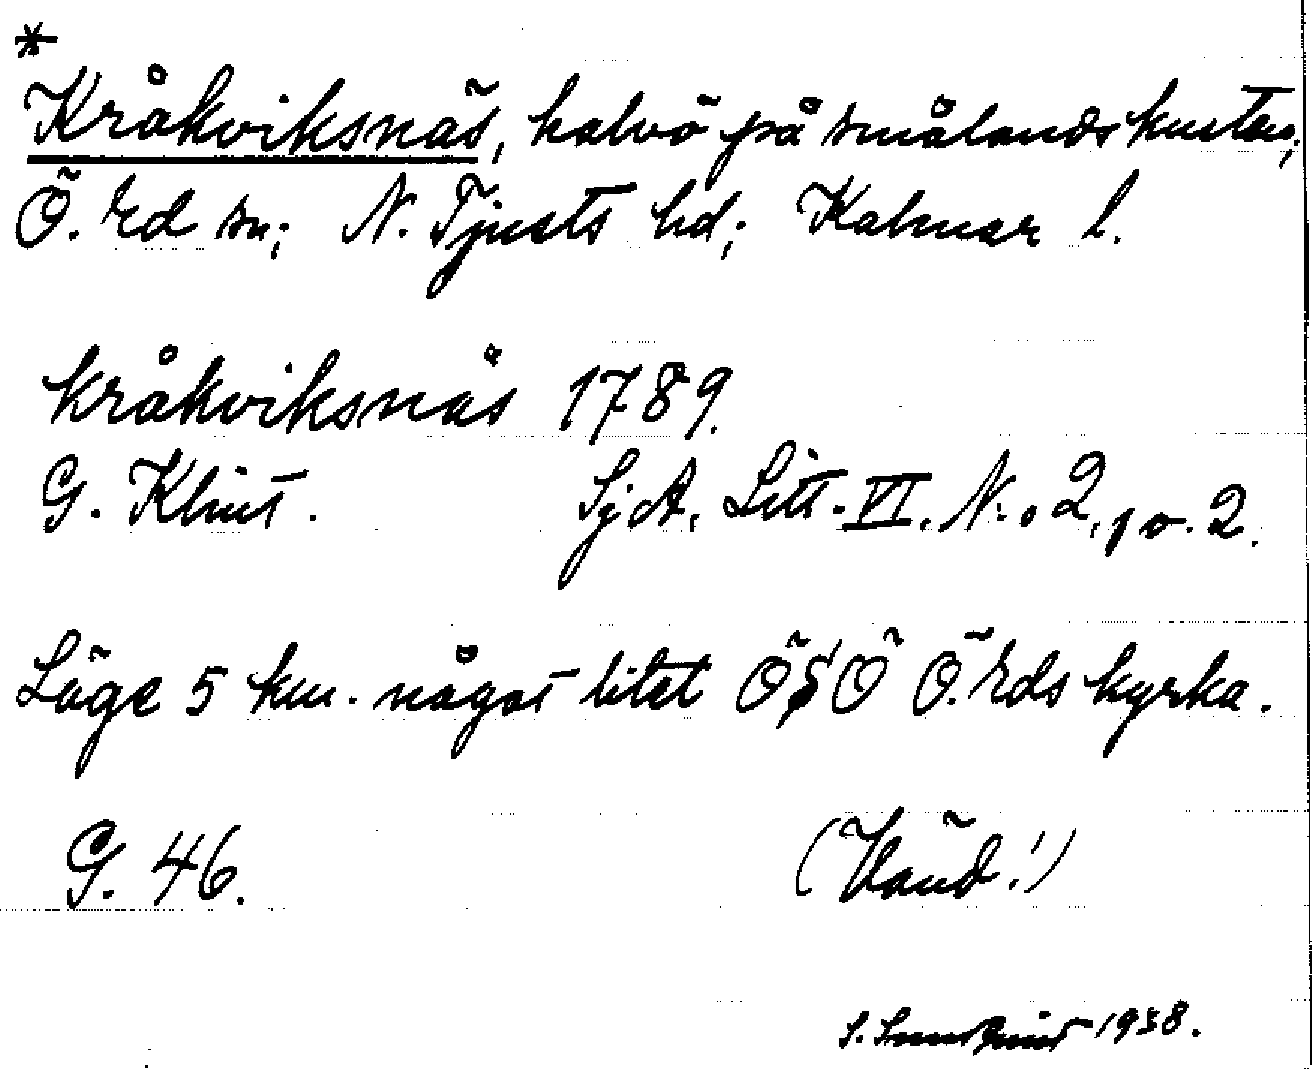 *
Kråkviksnäs, halvö på smålandskusten;
Ö. Ed sn; N. Tjusts hd; Kalmar l.
kråkviksnäs 1789.
G. Klint. SjA, Litt. VI. N:o 2, p. 2.
Läge 5 km. något litet ÖSÖ Ö. Eds kyrka.
G. 46. (Vänd!)
S. 1938.